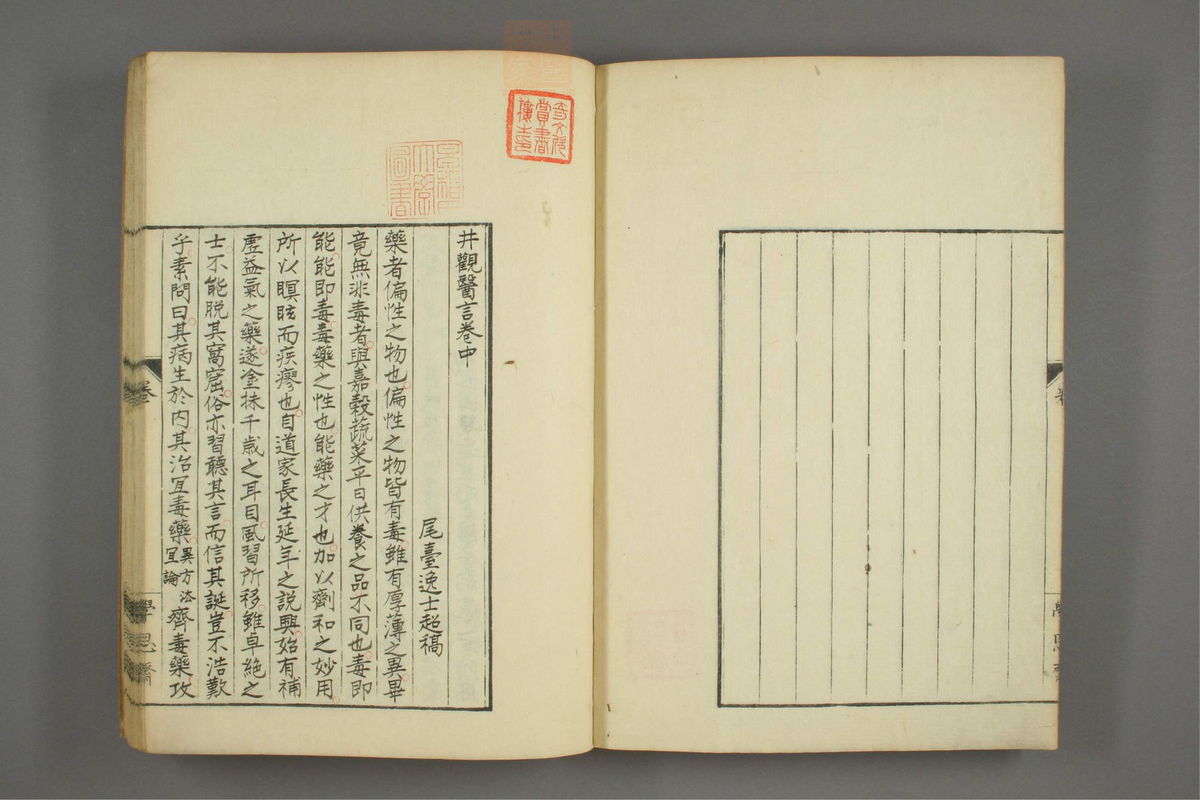 井觀醫言卷中
尾臺逸士超稿
藥者偏性之物也偏性之物皆有毒雖有厚薄之異畢
竟無非毒者與嘉穀蔬菜平日供養之品不同也毒即
能能即毒毒藥之性也能藥之才也加以劑和之妙用
所以瞑眩而疾瘳也自道家長生延年之說興始有補
虛益氣之藥遂塗抹千歲之耳目風習所移雖卓絕之
士不能脫其窩窟俗亦習聽其言而信其誕豈不浩歎
乎素問曰其病生於內其治宜毒藥異方法宜論齊毒藥攻
奇文欣賞書樓之印
圖書
卷
學思齋
學思齋